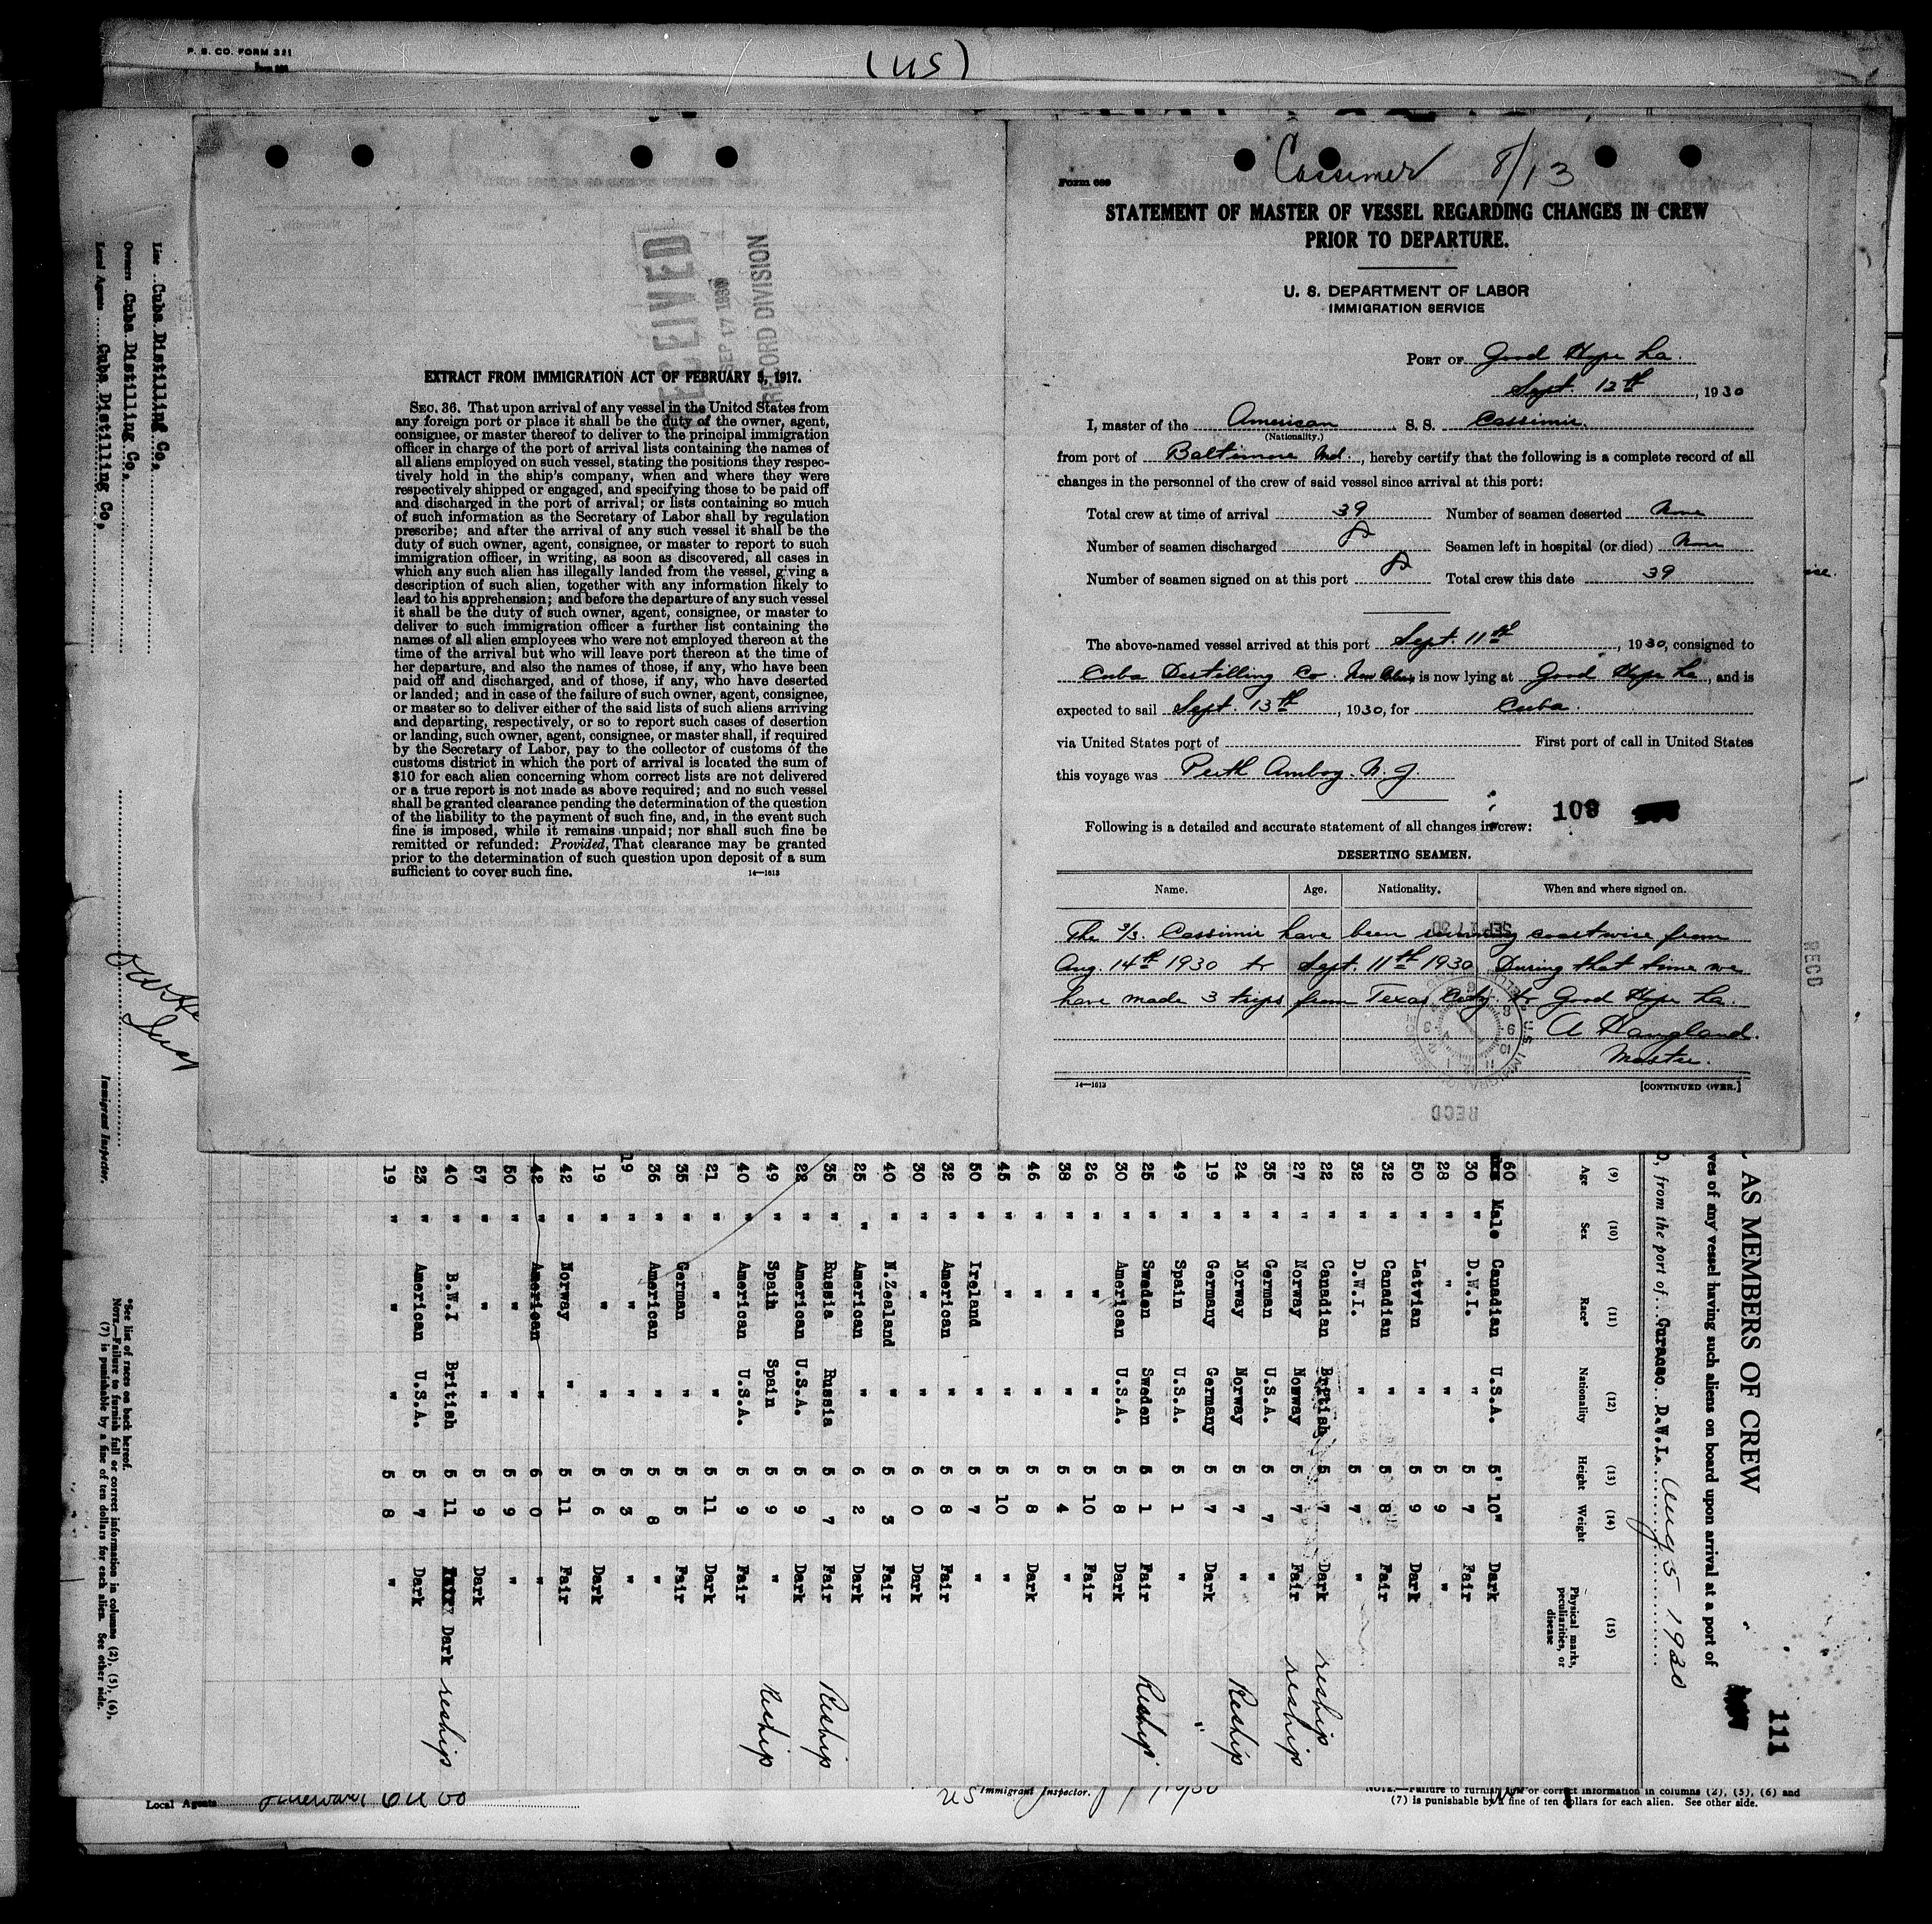 P. S. CO. FORM 321
(US)
RECEIVED
SEP 17 1930
RECORD DIVISION
EXTRACT FROM IMMIGRATION ACT OF FEBRUARY 5, 1917.
SEC. 36. That upon arrival of any vessel in the United States from
any foreign port or place it shall be the duty of the owner, agent,
consignee, or master thereof to deliver to the principal immigration
officer in charge of the port of arrival lists containing the names of
all aliens employed on such vessel, stating the positions they respec-
tively hold in the ship's company, when and where they were
respectively shipped or engaged, and specifying those to be paid off
and discharged in the port of arrival; or lists containing so much
of such information as the Secretary of Labor shall by regulation
prescribe; and after the arrival of any such vessel it shall be the
duty of such owner, agent, consignee, or master to report to such
immigration officer, in writing, as soon as discovered, all cases in
which any such alien has illegally landed from the vessel, giving a
description of such alien, together with any information likely to
lead to his apprehension; and before the departure of any such vessel
it shall be the duty of such owner, agent, consignee, or master to
deliver to such immigration officer a further list containing the
names of all alien employees who were not employed thereon at the
time of the arrival but who will leave port thereon at the time of
her departure, and also the names of those, if any, who have been
paid off and discharged, and of those, if any, who have deserted
or landed; and in case of the failure of such owner, agent, consignee,
or master so to deliver either of the said lists of such aliens arriving
and departing, respectively, or so to report such cases of desertion
or landing, such owner, agent, consignee, or master shall, if required
by the Secretary of Labor, pay to the collector of customs of the
customs district in which the port of arrival is located the sum of
$10 for each alien concerning whom correct lists are not delivered
or a true report is not made as above required; and no such vessel
shall be granted clearance pending the determination of the question
of the liability to the payment of such fine, and, in the event such
fine is imposed, while it remains unpaid; nor shall such fine be
remitted or refunded: Provided, That clearance may be granted
prior to the determination of such question upon deposit of a sum
sufficient to cover such fine. 14—1613
Cassimer 8/13
Form 689
STATEMENT OF MASTER OF VESSEL REGARDING CHANGES IN CREW
PRIOR TO DEPARTURE.
U. S. DEPARTMENT OF LABOR
IMMIGRATION SERVICE
PORT OF Good Hope La.
Sept. 12th, 1930
I, master of the American S. S. Cassimir.
(Nationality.)
from port of Baltimore Md., hereby certify that the following is a complete record of all
changes in the personnel of the crew of said vessel since arrival at this port:
Total crew at time of arrival 39 Number of seamen deserted None
Number of seamen discharged 8 Seamen left in hospital (or died) None
Number of seamen signed on at this port 8 Total crew this date 39
The above-named vessel arrived at this port Sept. 11th, 1930, consigned to
Cuba Destilling Co. New Orleans is now lying at Good Hope La, and is
expected to sail Sept. 13th, 1930, for Cuba.
via United States port of First port of call in United States
this voyage was Perth Amboy. N. J.
109
Following is a detailed and accurate statement of all changes in crew:
DESERTING SEAMEN.
Name. Age. Nationality. When and where signed on.
The S/S. Cassimir have been running coastwise from
Aug. 14th 1930 to Sept. 11th 1930 During that time we
have made 3 trips from Texas City to Good Hope La.
A Haugland.
Master.
14—1613 [CONTINUED OVER.]
RECD
RECD
111
AS MEMBERS OF CREW
ves of any vessel having such aliens on board upon arrival at a port of
, from the port of Curacao D.W.I. Aug 5 1930
(9) (10) (11) (12) (13) (14) (15)
Age Sex Race* Nationality Height Weight Physical marks, peculiarities, or disease
60 Male Canadian U.S.A. 5'10" Dark
30 " D.W.I. " 5 7 Fair
28 " " " 5 9 "
50 " Latvian " 5 9 Dark
32 " Canadian " 5 8 Fair
32 " D.W.I. " 5 7 "
22 " Canadian British 5 7 Dark reship
27 " Norway Norway 5 7 Fair reship
35 " German U.S.A. 5 7 "
24 " Norway Norway 5 7 " Reship
19 " Germany Germany 5 7 Dark
49 " Spain U.S.A. 5 1 "
25 " Sweden Sweden 5 1 Fair Reship
30 " American U.S.A. 5 8 Dark
26 " " " 5 10 Fair
38 " " " 5 4 "
46 " " " 5 8 Dark
45 " " " 5 10 "
50 " Ireland " 5 7 "
32 " American " 5 8 Fair
30 " " " 6 0 Dark
40 " N.Zealand " 5 3 Fair
25 " American " 6 2 Dark
35 " Russia Russia 5 7 Fair Reship
22 " American U.S.A. 5 9 Dark
49 " Spain Spain 5 9 " Reship
40 " American U.S.A. 5 9 Fair
21 " " " 5 11 Dark
35 " German " 5 5 Fair
36 " American " 5 8 "
19 " " " 5 3 "
19 " " " 5 6 Dark
42 " Norway " 5 11 Fair
42 " American " 6 0 "
50 " " " 5 9 "
57 " " " 5 9 Dark
40 " B.W.I British 5 11 Dark reship
23 " American U.S.A. 5 7 Dark
19 " " " 5 8 "
Line Cuba Distilling Co.
Owners Cuba Distilling Co.
Local Agents Cuba Distilling Co.
Immigrant Inspector.
*See list of races on back hereof.
NOTE.—Failure to furnish full or correct information in columns (2), (5), (6),
(7) is punishable by a fine of ten dollars for each alien. See other side.
Local Agents
US Immigrant Inspector.
NOTE.—Failure to furnish full or correct information in columns (2), (5), (6) and
(7) is punishable by a fine of ten dollars for each alien. See other side.